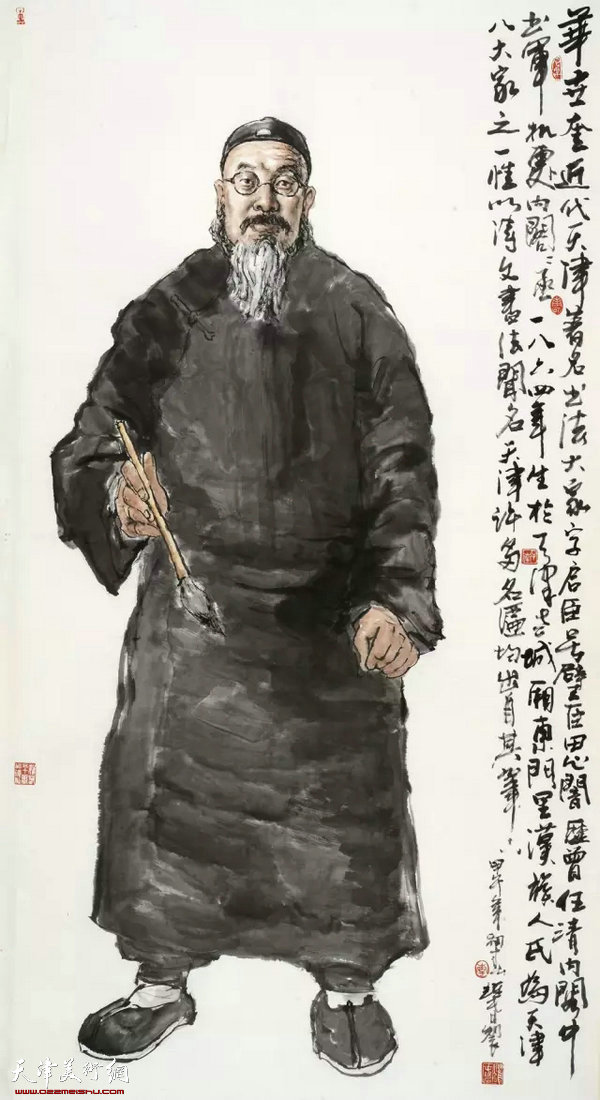 華世奎近代天津著名书法大家字启臣号璧臣思闇歷曾任清内閣中
书軍机處内閣阁丞一八六四年生於天津老城厢東門里漢族人氏為天津
八大家之一惟以诗文書法聞名天津许多名匾均出自其筆
甲午年
天津美術網
www.022meishu.com